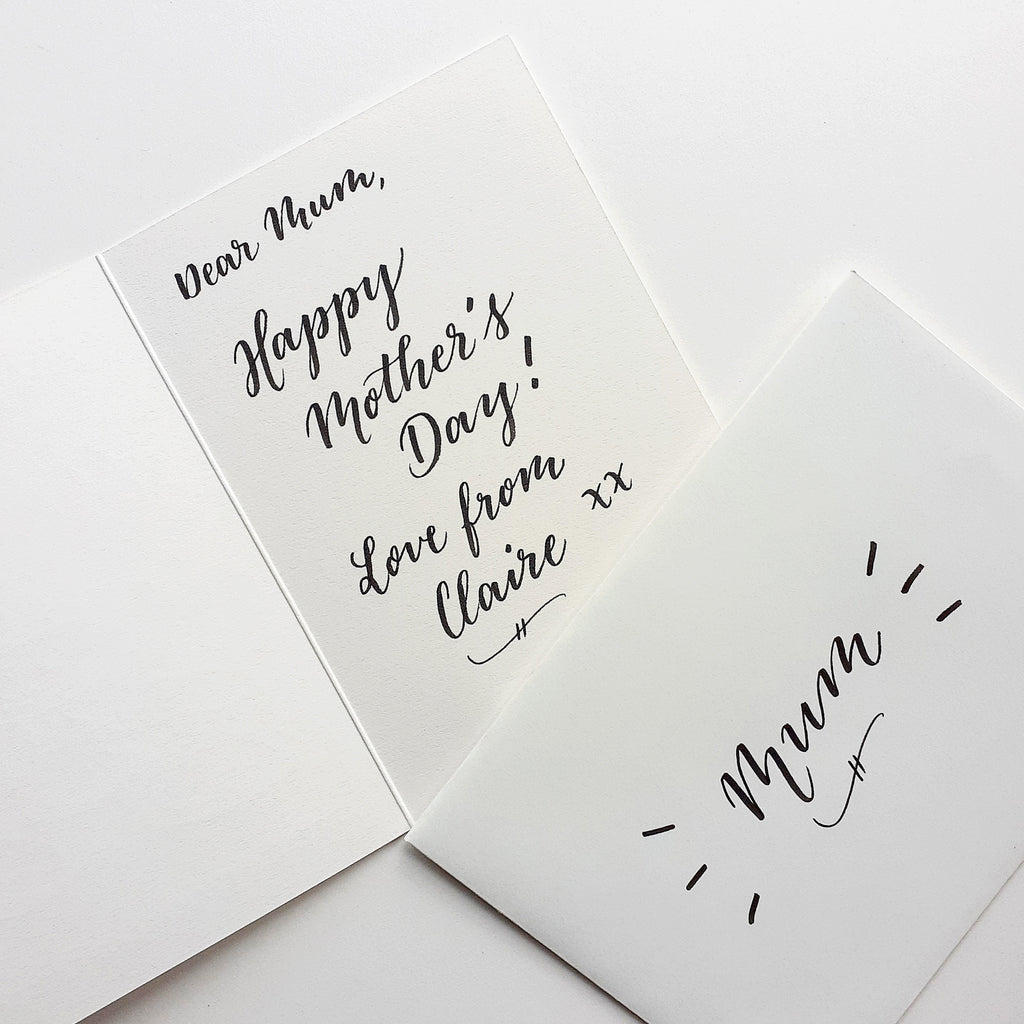 Dear Mum,
Happy
Mother's
Day!
Love from
Claire xx
Mum